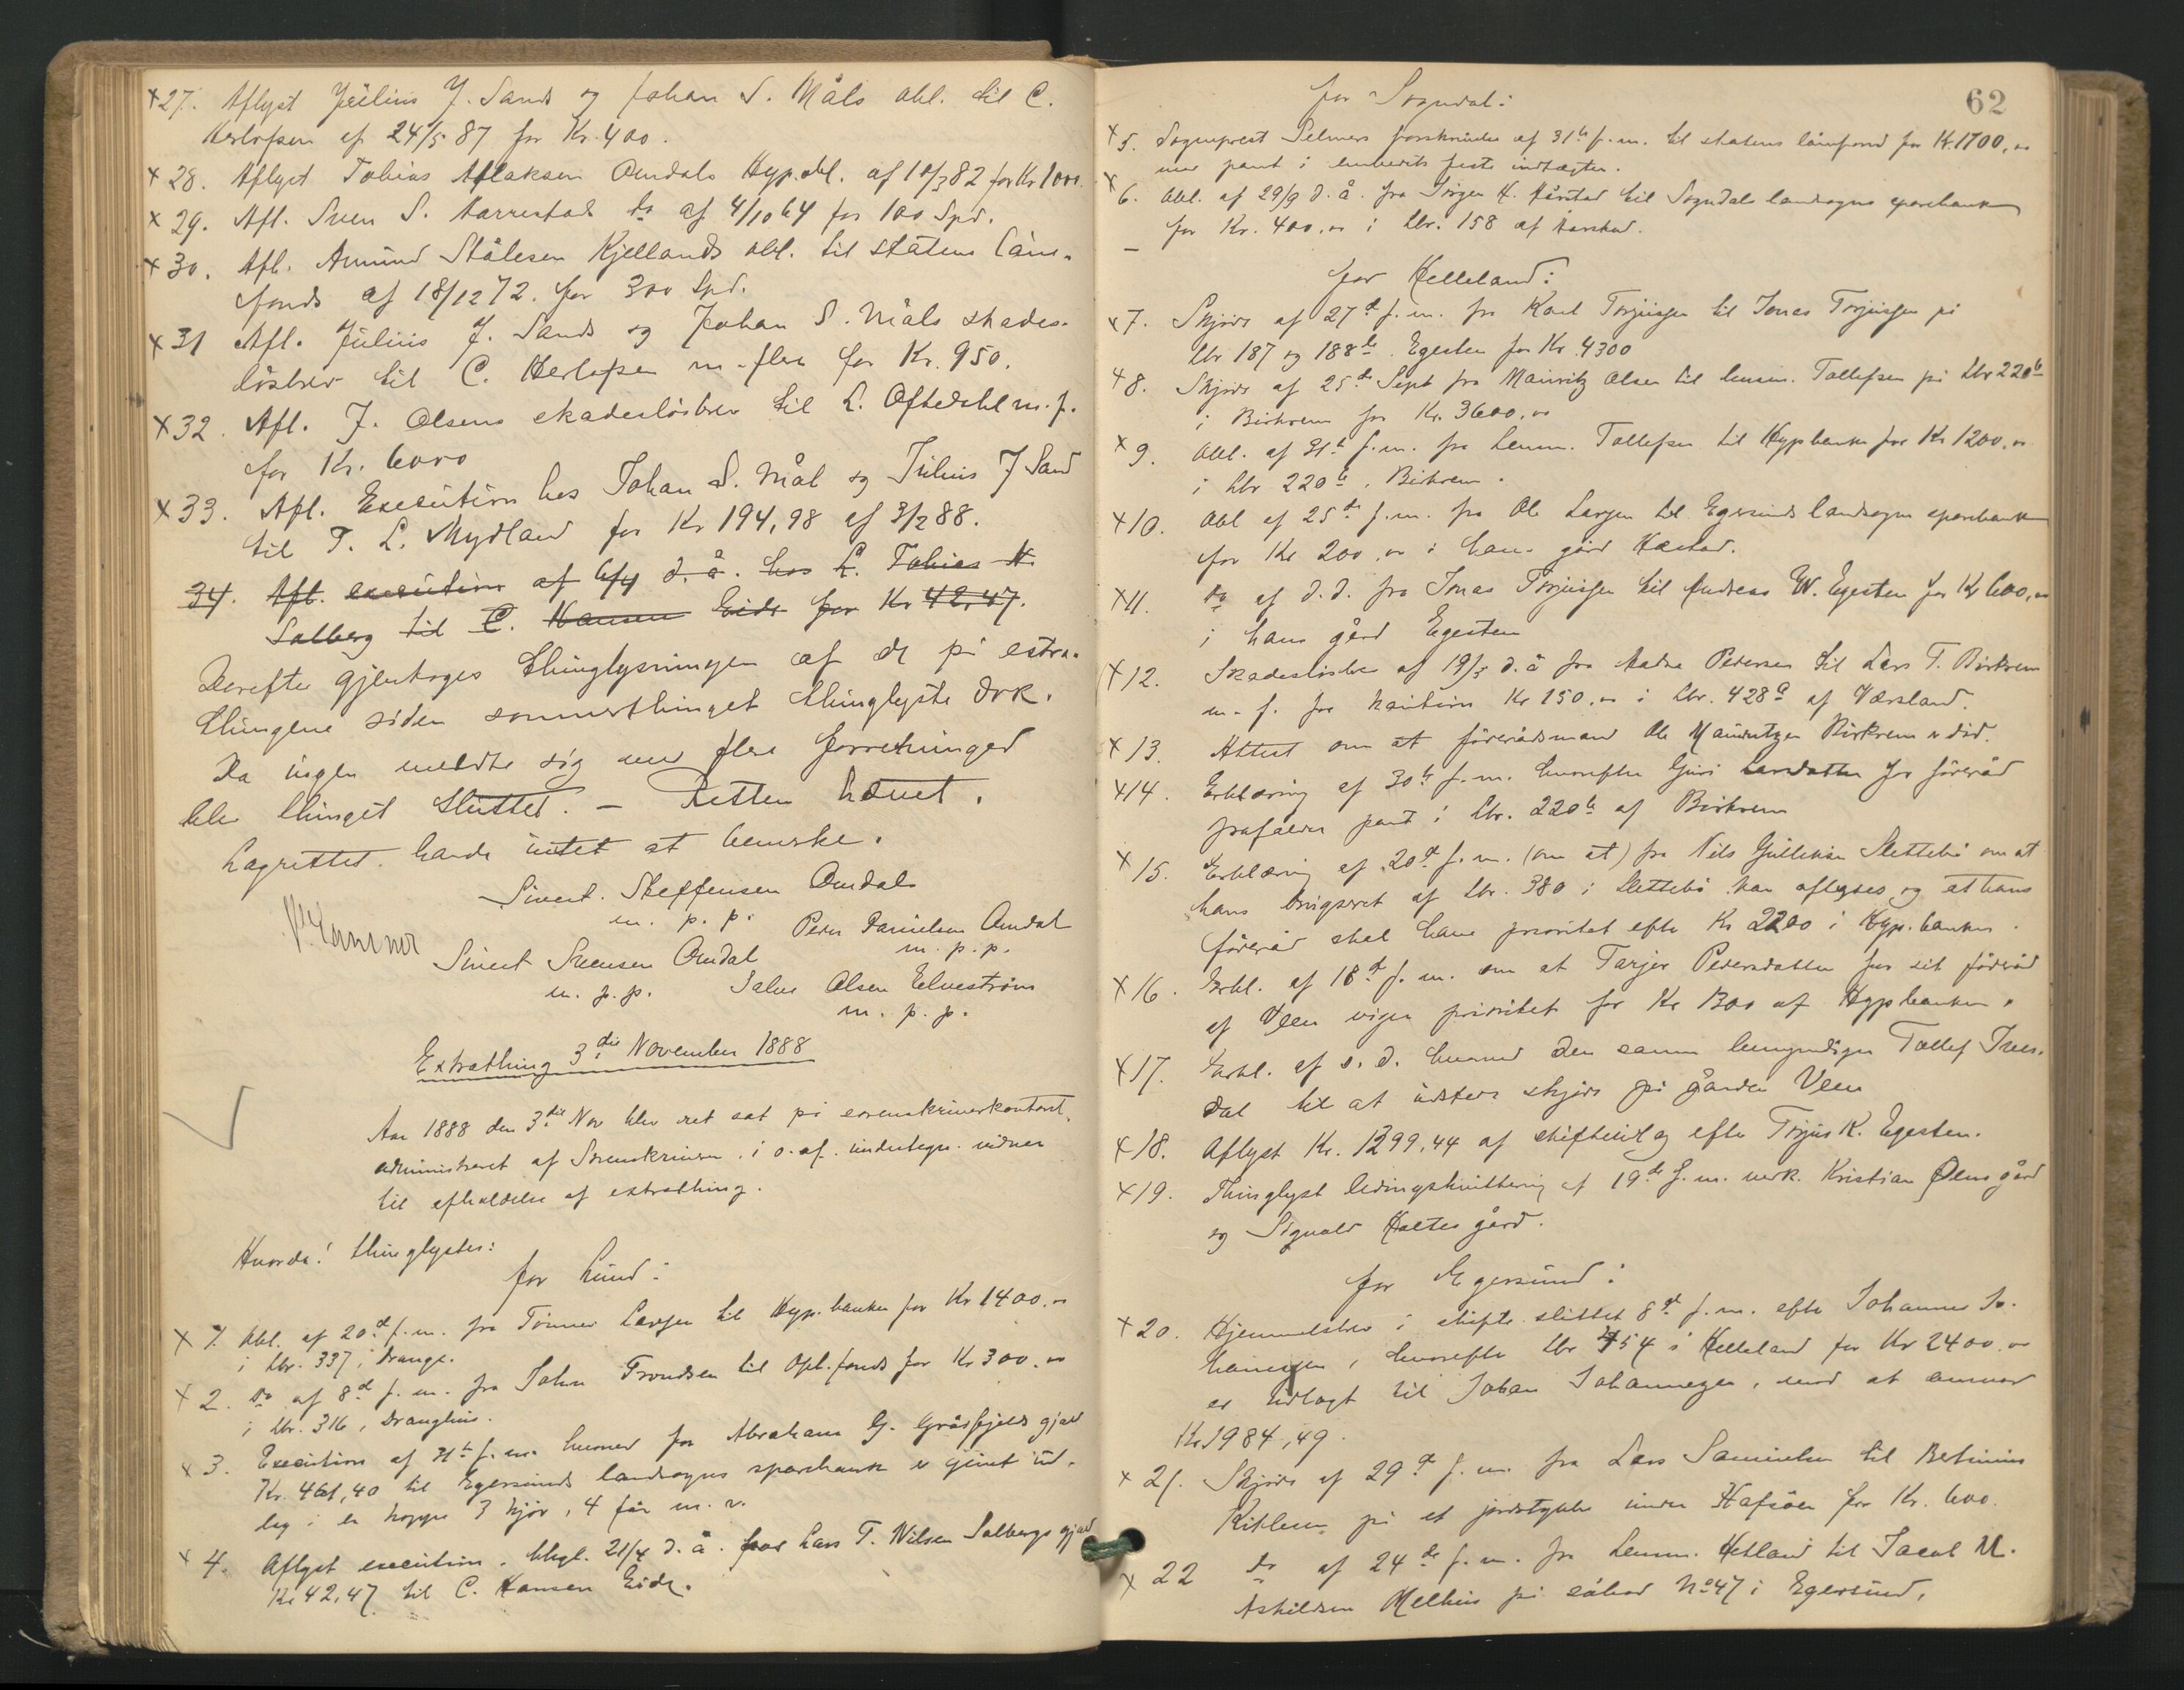 +27. Aflyst Julius J. Sands og Johan S. Måls obl. til C.
Herlofsen af 24/5 87 for Kr. 400.
+ 28. Aflyst Tobias Aslaksen Omdals Hyp.obl. af 10/3 82 for Kr 1000.
+ 29. Afl. Sven S. Harrestads do af 4/10 64 for 100 Spd.
+ 30. Afl. Amund Stålesen Kjellands obl. til statens låne-
fonds af 18/12 72. for 300 Spd.
+ 31 Afl. Julius J. Sands og Johan S. Måls skades-
løsbrev til C. Herlofsen m. flere for Kr. 950.
+ 32. Afl. J. Olsens skadesløsbrev til L. Oftedahl m. f.
for Kr. 6000
+ 33. Afl. Execution hos Johan S. Mål og Julius J Sand
til T. L. Mydland for Kr 194,98 af 3/2 88.
34. Afl. execution af 6/4 d. å. hos L. Tobias N.
Salberg til C. Hansen Eide for Kr 42,47.
Derefter gjentoges thinglysningen af de på extra-
thingene siden sommerthinget thinglyste dok.
Da ingen meldte sig med flere forretninger
blev thinget sluttet. – Retten hævet.
Lagrettet havde intet at bemærke.
Sivert Steffensen Omdal
m. p. p. Peder Danielsen Omdal
Sivert Svensen Omdal m. p. p.
m. p. p. Salve Olsen Elvestrøm
m. p. p.
Extrathing 3die November 1888
Aar 1888 den 3die Nov blev ret sat på sorenskriverkontoret,
administreret af Sorenskriveren i o. af. undertegn. vidner
til afholdelse af extrathing.
Hvorda! thinglystes:
for Lund:
+ 1. Obl. af 20de f. m. fra Tønnes Larsen til Hyp.banken for Kr 1400.00
i Lbr. 337 i Drange.
+ 2. Do af 8de f. m. fra Johan Trondsen til Opl.fonds for Kr 300.00
i Lbr. 316, Dranghus.
+ 3. Execution af 31te f. m. hvorved for Abraham G. Gråsfjelds gjæld
Kr. 461,40 til Egersunds landsogns sparebank er gjort ud-
læg i en hoppe 3 kjør, 4 får m. v.
+ 4. Aflyst execution. thgl. 21/4 d. å. for Lars T. Nilsen Salbergs gjæld
Kr 42,47 til C. Hansen Eide.
62
for Sogndal:
+ 5. Sogneprest Selmers forskrivelse af 31te f. m. til statens lånefond for Kr. 1700,00
med pant i embedets faste indtægter.
+ 6. Obl. af 29/9 d. å. fra Jørgen H. Årstad til Sogndals landsogns sparebank
– for Kr. 400.00 i Lbr. 158 af Årstad.
for Helleland:
+ 7. Skjøde af 27de f. m. fra Karl Torjussen til Jonas Torjussen på
Lbr 187 og 188b. Egesten for Kr. 4300
+ 8. Skjøde af 25de Sept fra Mauritz Olsen til lensm. Tollefsen på Lbr 220b
i Birkrem for Kr. 3600.00
+ 9. Obl. af 31te f. m. fra Lensm. Tollefsen til Hypbanken for Kr 1200.00
i Lbr 220b, Birkrem.
+10. Obl af 25de f. m. fra Ole Larsen til Egersunds landsogns sparebank
for Kr 200.00 i hans gård Hæstad.
+11. Do af d. d. fra Jonas Torjussen til Andreas W. Egesten for Kr 600,00
i hans gård Egesten
+12. Skadesløsbr af 19/3 d. å fra Aadne Pedersen til Lars T. Birkrem
m. f. for kaution Kr 150.00 i Lbr. 428a af Værsland.
+ 13. Attest om at føderådsmand Ole Mauritzen Birkrem er død.
+14. Erklæring af 30te f. m. hvorefter Guri Larsdatter for føderåd
frafalder pant i Lbr. 220b af Birkrem
+ 15. Erklæring af 20de f. m. (om at) fra Nils Gulleksen Slettebø om at
hans brugsret af Lbr. 380 i Slettebø kan aflyses og at hans
føderåd skal have prioritet efter Kr 2200 i Hyp.banken.
+ 16. Erkl. af 18de f. m. om at Tarjer Pedersdatter for sit føderåd
af Veen viger prioritet for Kr 1300 af Hypbanken.
+17. Erkl. af s. d. hvorved den samme bemyndiger Tollef Ives-
dal til at udstede skjøde på gården Veen
+18. Aflyst Kr. 1299,44 af skifteudlæg efter Torjus K. Egesten.
+19. Thinglyst ledingskvittering af 19de f. m. vedk. Kristian Ølens gård
og Sigvald Haltes gård.
for Egersund:
+ 20. Hjemmelsbrev i skifte sluttet 8de f. m. efter Johannes Jo-
hannessen, hvorefter Lbr 454 i Helleland for Kr 2400.00
er udlagt til Johan Johannessen, mod at
Kr 1984,49.
+ 21. Skjøde af 29de f. m. fra Lars Samuelsen til Bertinius
på et jordstykke under Hafsøen for Kr. 600.
+ 22 Do af 24de f. m. fra Lensm. Hetland til Jacob M.
Askildsen Melhus på søbod No 47 i Egersund,